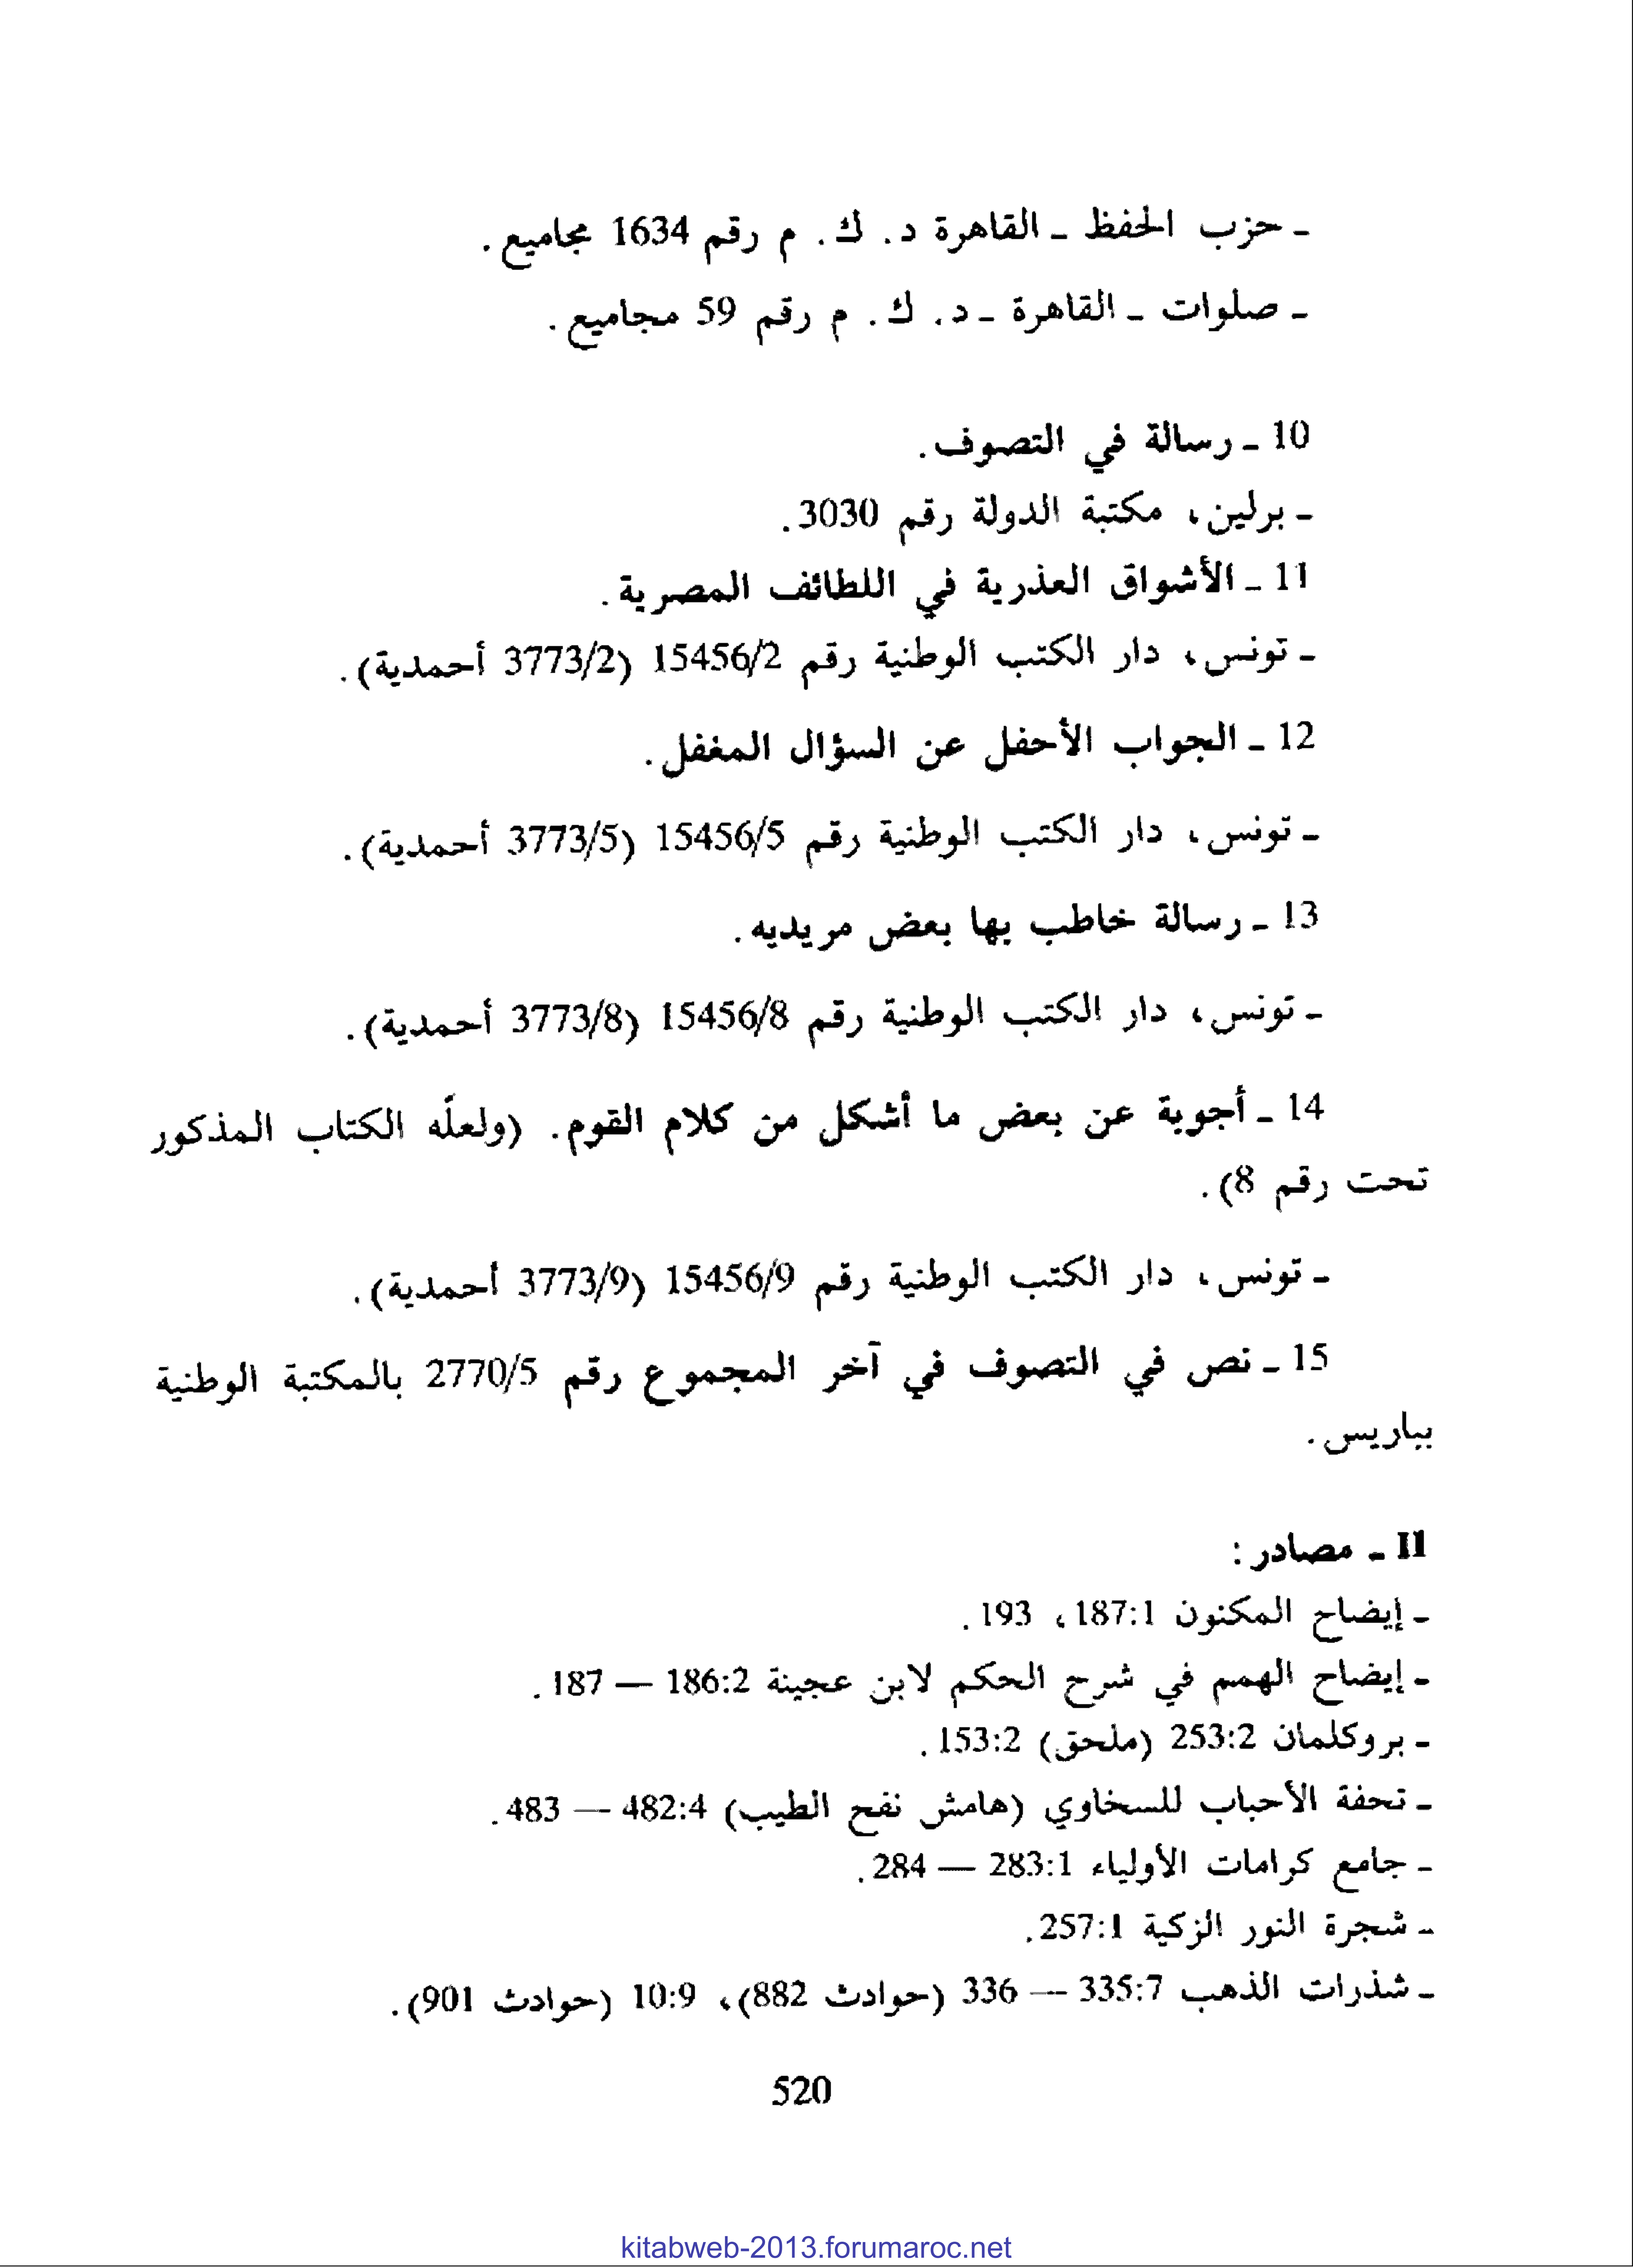 ـ حزب الحفظ ـ القاهرة د. ك. م رقم 1634 مجاميع.
ـ صلوات ـ القاهرة ـ د. ك. م رقم 59 مجاميع.
10 ـ رسالة في التصوف.
ـ برلين، مكتبة الدولة رقم 3030.
11 ـ الأشواق العذرية في اللطائف المصرية.
ـ تونس، دار الكتب الوطنية رقم 15456/2 (3773/2 أحمدية).
12 ـ الجواب الأحفل عن السؤال المغفل.
ـ تونس، دار الكتب الوطنية رقم 15456/5 (3773/5 أحمدية).
13 ـ رسالة خاطب بها بعض مريديه.
ـ تونس، دار الكتب الوطنية رقم 15456/8 (3773/8 أحمدية).
14 ـ أجوبة عن بعض ما أشكل من كلام القوم. (ولعلّه الكتاب المذكور
تحت رقم 8).
ـ تونس، دار الكتب الوطنية رقم 15456/9 (3773/9 أحمدية).
15 ـ نص في التصوف في آخر المجموع رقم 2770/5 بالمكتبة الوطنية
بباريس.
II ـ مصادر:
ـ إيضاح المكنون 187:1، 193.
ـ إيضاح الهمم في شرح الحكم لابن عجينة 186:2 — 187.
ـ بروكلمان 253:2 (ملحق) 153:2.
ـ تحفة الأحباب للسخاوي (هامش نفح الطيب) 482:4 — 483.
ـ جامع كرامات الأولياء 283:1 — 284.
ـ شجرة النور الزكية 257:1.
ـ شذرات الذهب 335:7 — 336 (حوادث 882)، 10:9 (حوادث 901).
520
kitabweb-2013.forumaroc.net